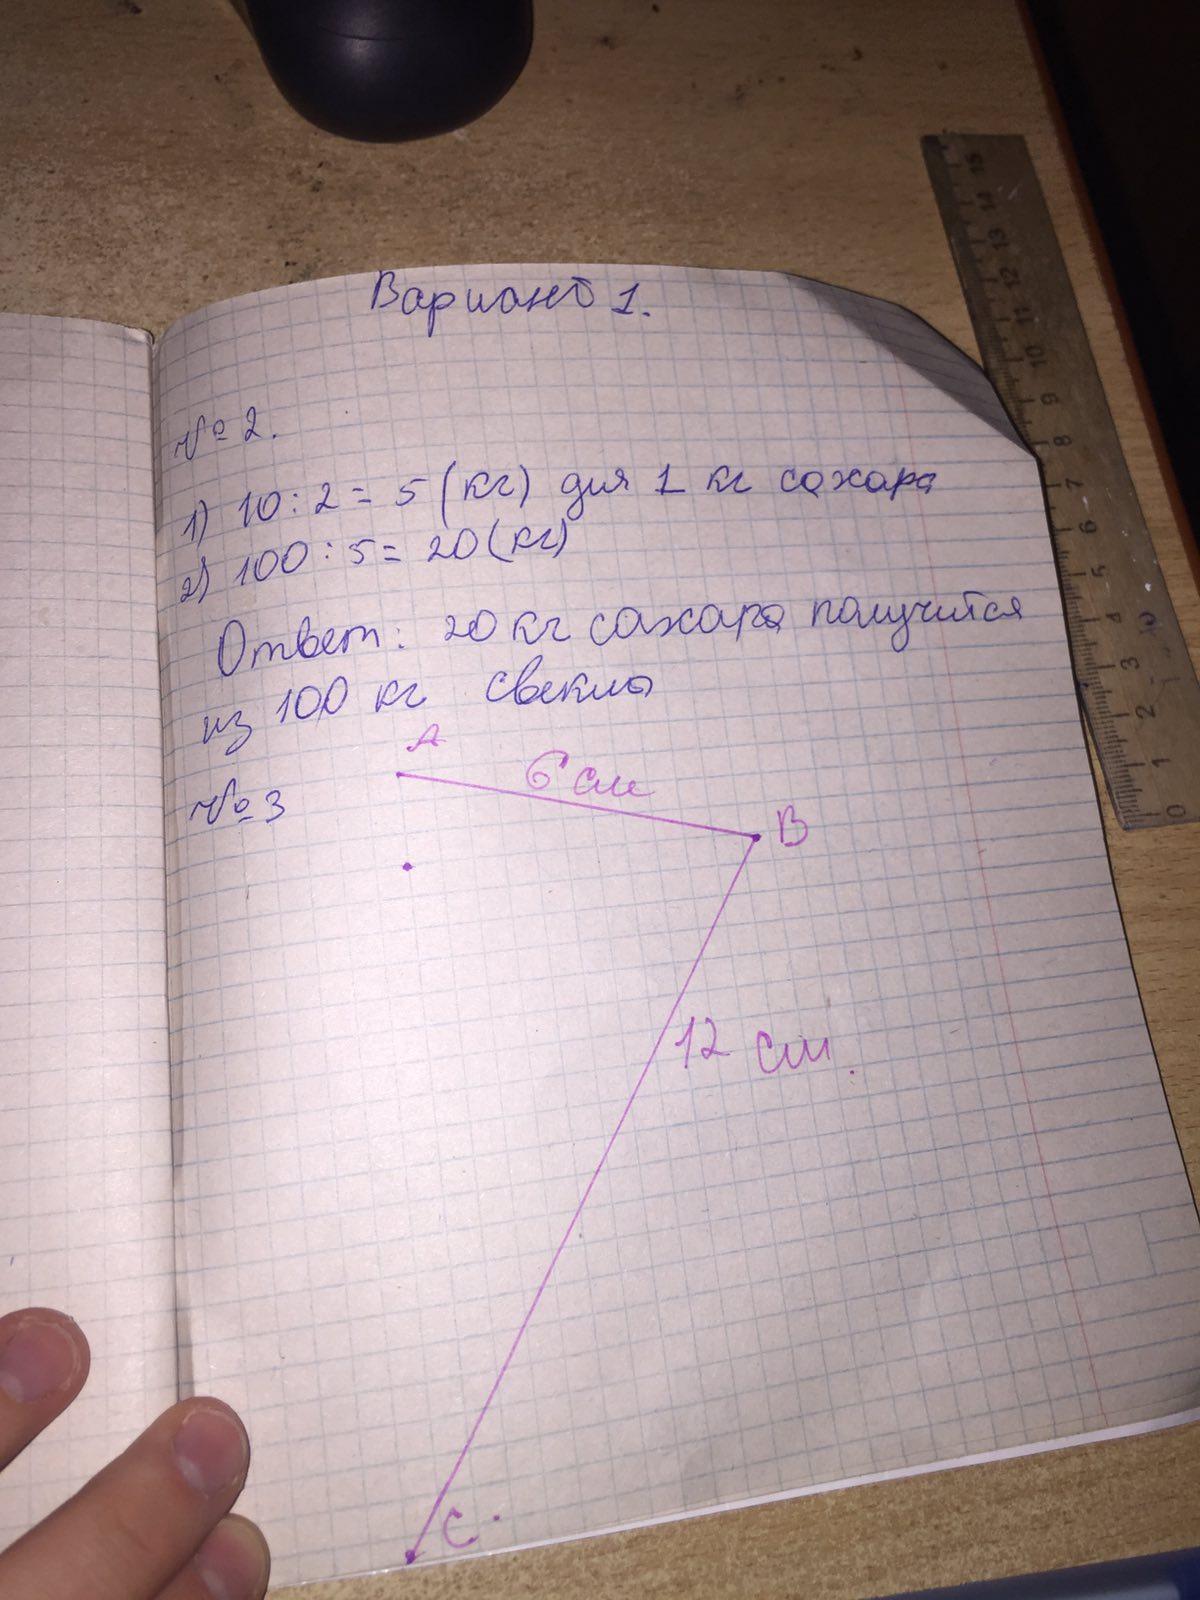 Вариант 1.
№ 2.
1) 10 : 2 = 5 (кг) для 1 кг сахара
2) 100 : 5 = 20 (кг)
Ответ: 20 кг сахара получится
из 100 кг свеклы
A
6 см
№ 3
B
12 см.
C.
15 14 13 12 11 10 9 8 7 6 5 4 3 2 1 0